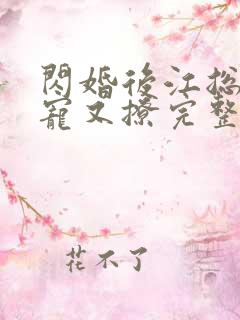 閃婚後江总
寵又撩完整
花不了